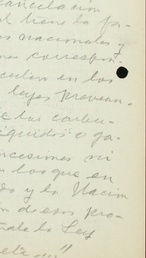 cancelación
el tiene la fa-
os nacionales y
nes correspon-
culen en las
leyes provean-
e los carbu-
líquidos o ga-
ncesiones ni
los que en
do y la Nación
n de esos pro-
ale la Ley
"